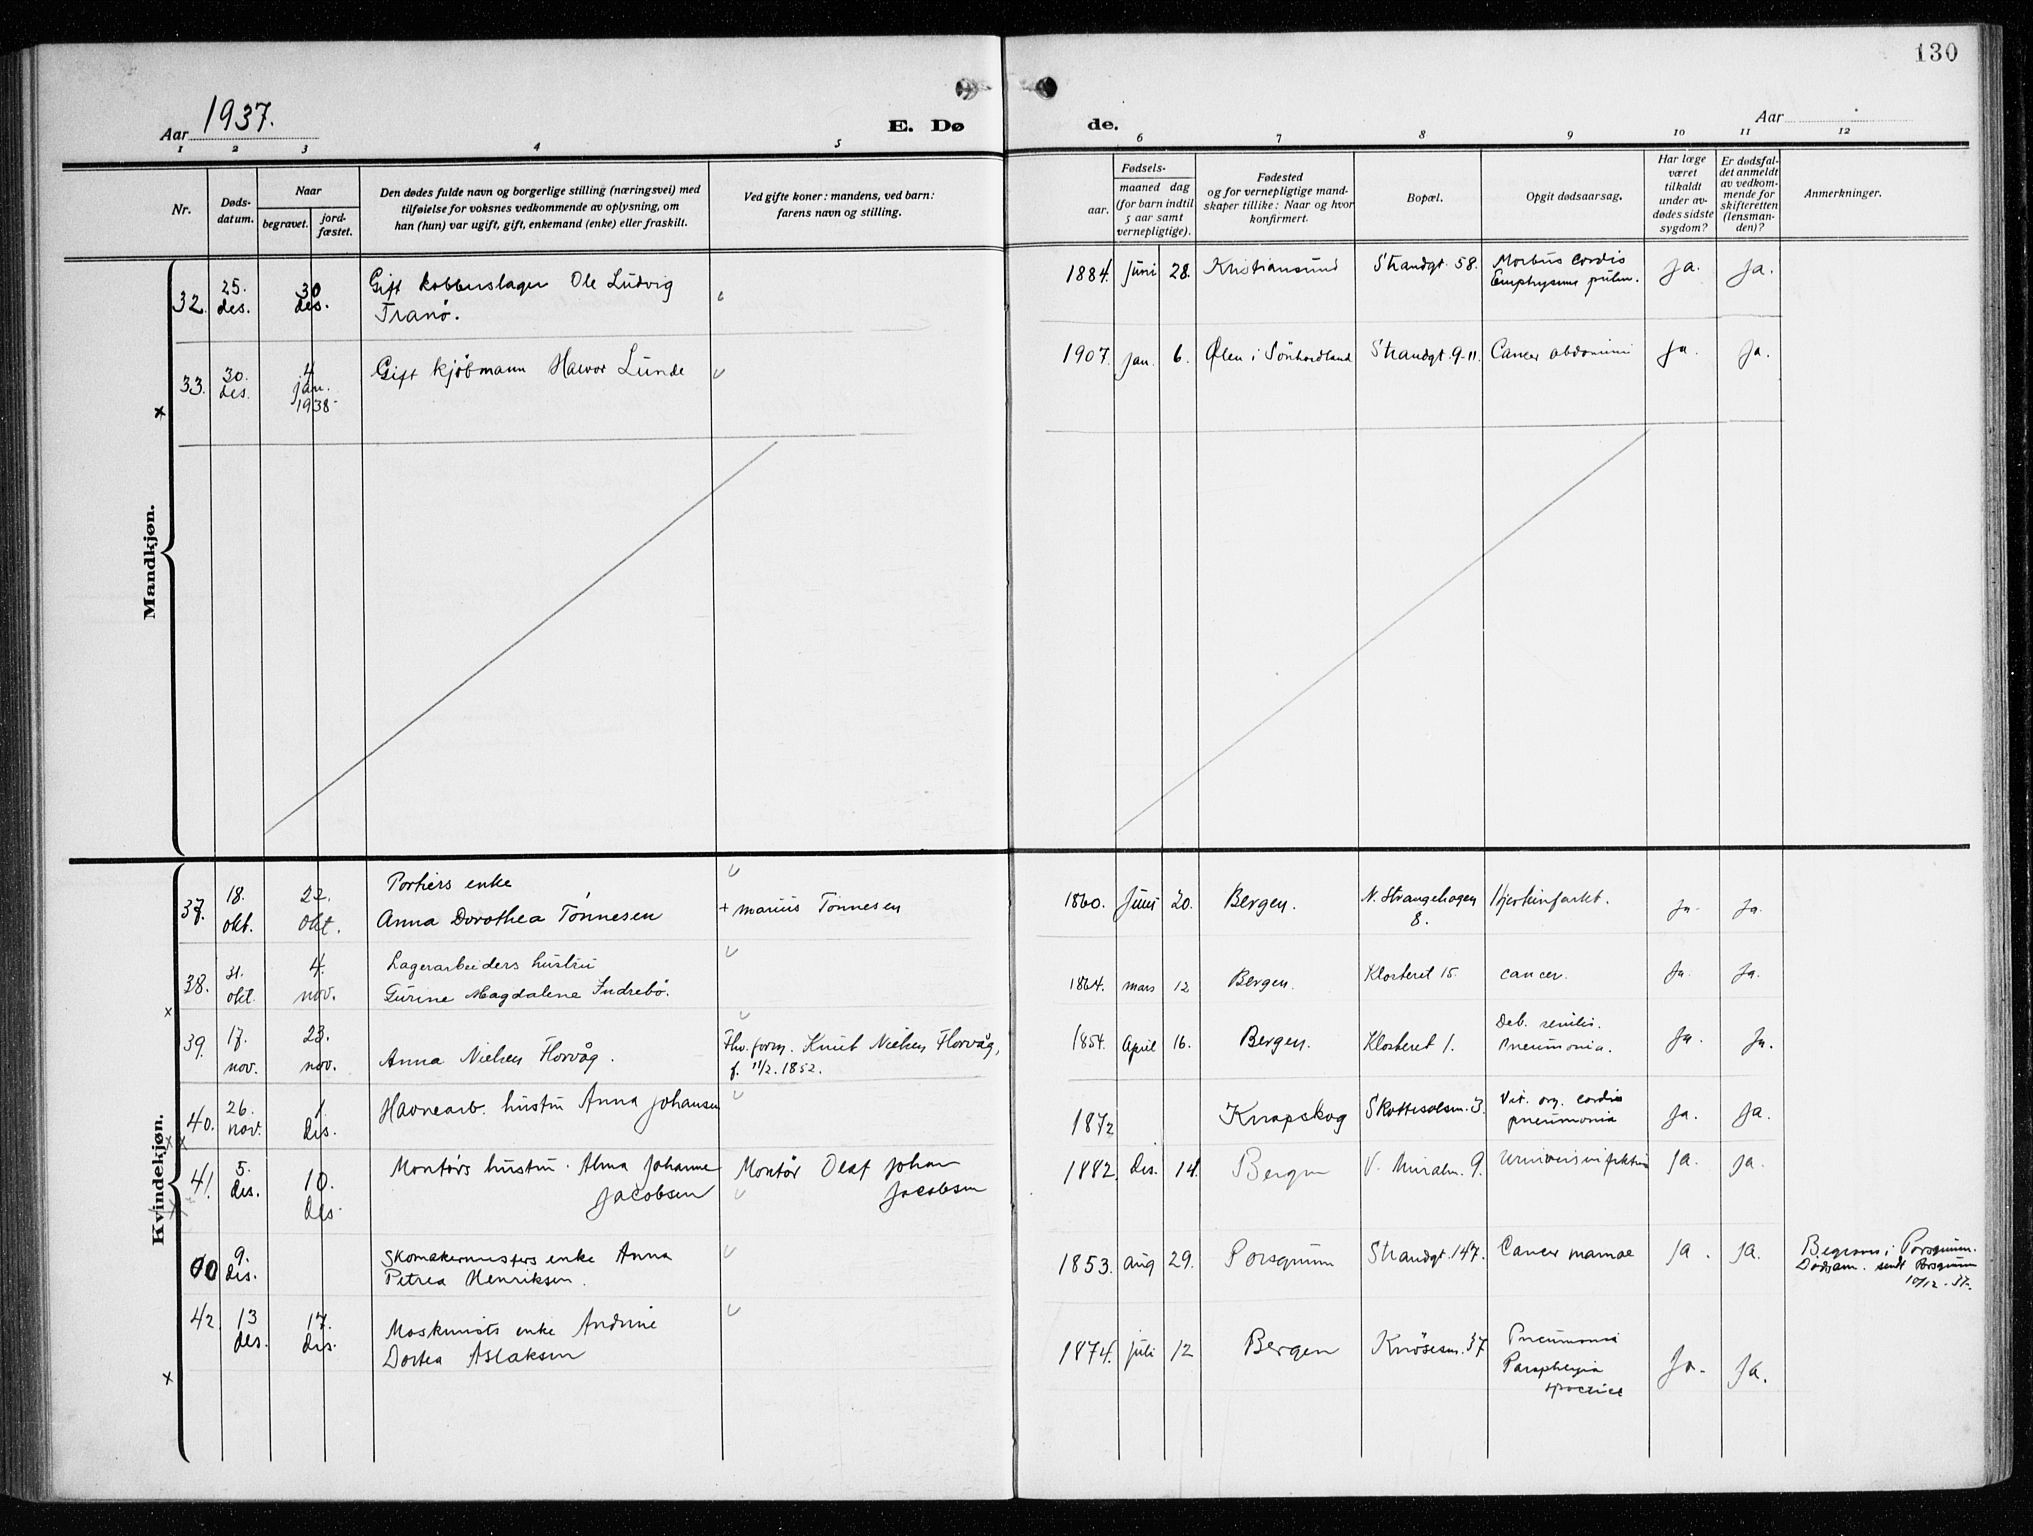 130
Aar 1937.
E. Dø
de.
Aar
1 2 3 4 5 6 7 8 9 10 11 12
Nr.
Døds-
datum.
Naar
begravet.
jord-
fæstet.
Den dødes fulde navn og borgerlige stilling (næringsvei) med
tilføielse for voksnes vedkommende av oplysning, om
han (hun) var ugift, gift, enkemand (enke) eller fraskilt.
Ved gifte koner: mandens, ved barn:
farens navn og stilling.
Fødsels-
aar.
maaned dag
(for barn indtil
5 aar samt
vernepligtige).
Fødested
og for vernepligtige mand-
skaper tillike: Naar og hvor
konfirmert.
Bopæl.
Opgit dødsaarsag.
Har læge
været
tilkaldt
under av-
dødes sidste
sygdom?
Er dødsfal-
det anmeldt
av vedkom-
mende for
skifteretten
(lensman-
den)?
Anmerkninger.
Mandkjøn.
32. 25. des. 30 des.
Gift kobberslager Ole Ludvig
Tranø.
1884. Juni 28. Kristiansund Strandgt. 58. Morbus cordis
Emphysema pulm. Ja. Ja.
33. 30. des. 4 jan. 1938
Gift kjøbmann Halvor Lunde
1907. Jan. 6. Ølen i Sønhordland Strandgt. 9-11. Cancer abdomini Ja. Ja.
Kvindekjøn.
37. 18. okt. 22. okt.
Portiers enke
Anna Dorothea Tønnesen
+ Marius Tønnesen
1860. Juni 20. Bergen. N. Strangehagen
8. Hjerteinfarkt. Ja. Ja.
38. 31. okt. 4. nov.
Lagerarbeiders hustru
Gurine Magdalene Indrebø.
1864. mars 12 Bergen. Klosteret 15 cancer. Ja. Ja.
39. 17. nov. 23. nov.
Anna Nielsen Florvåg.
Fhv. form. Knut Nielsen Florvåg,
f. 11/2. 1852.
1854. April 16. Bergen. Klosteret 1. Deb. senilis.
Pneumonia. Ja. Ja.
40. 26. nov. 1. des.
Havnearb. hustru Anna Johansen
1872 Knapskog Skottesalsm. 3. Vit. org. cordis
pneumonia Ja. Ja.
41. 5. des. 10. des.
Montørs hustru. Alma Johanne
Jacobsen
Montør Olaf Johan
Jacobsen
1882. des. 14. Bergen V. Muralm. 9. Ja. Ja.
00 9. des.
Skomakermesters enke Anna
Petrea Henriksen.
1853. aug 29. Porsgrunn Strandgt. 147. Cancer mamae Ja. Ja.
Begraves i Porsgrunn.
Dødsan. sendt Porsgrunn
10/12. 37.
42. 13 des. 17. des.
Maskinists enke Andrine
Dortea Aslaksen
1874. juli 12 Bergen Knøsesm. 37 Pneumonia
Ja. Ja.